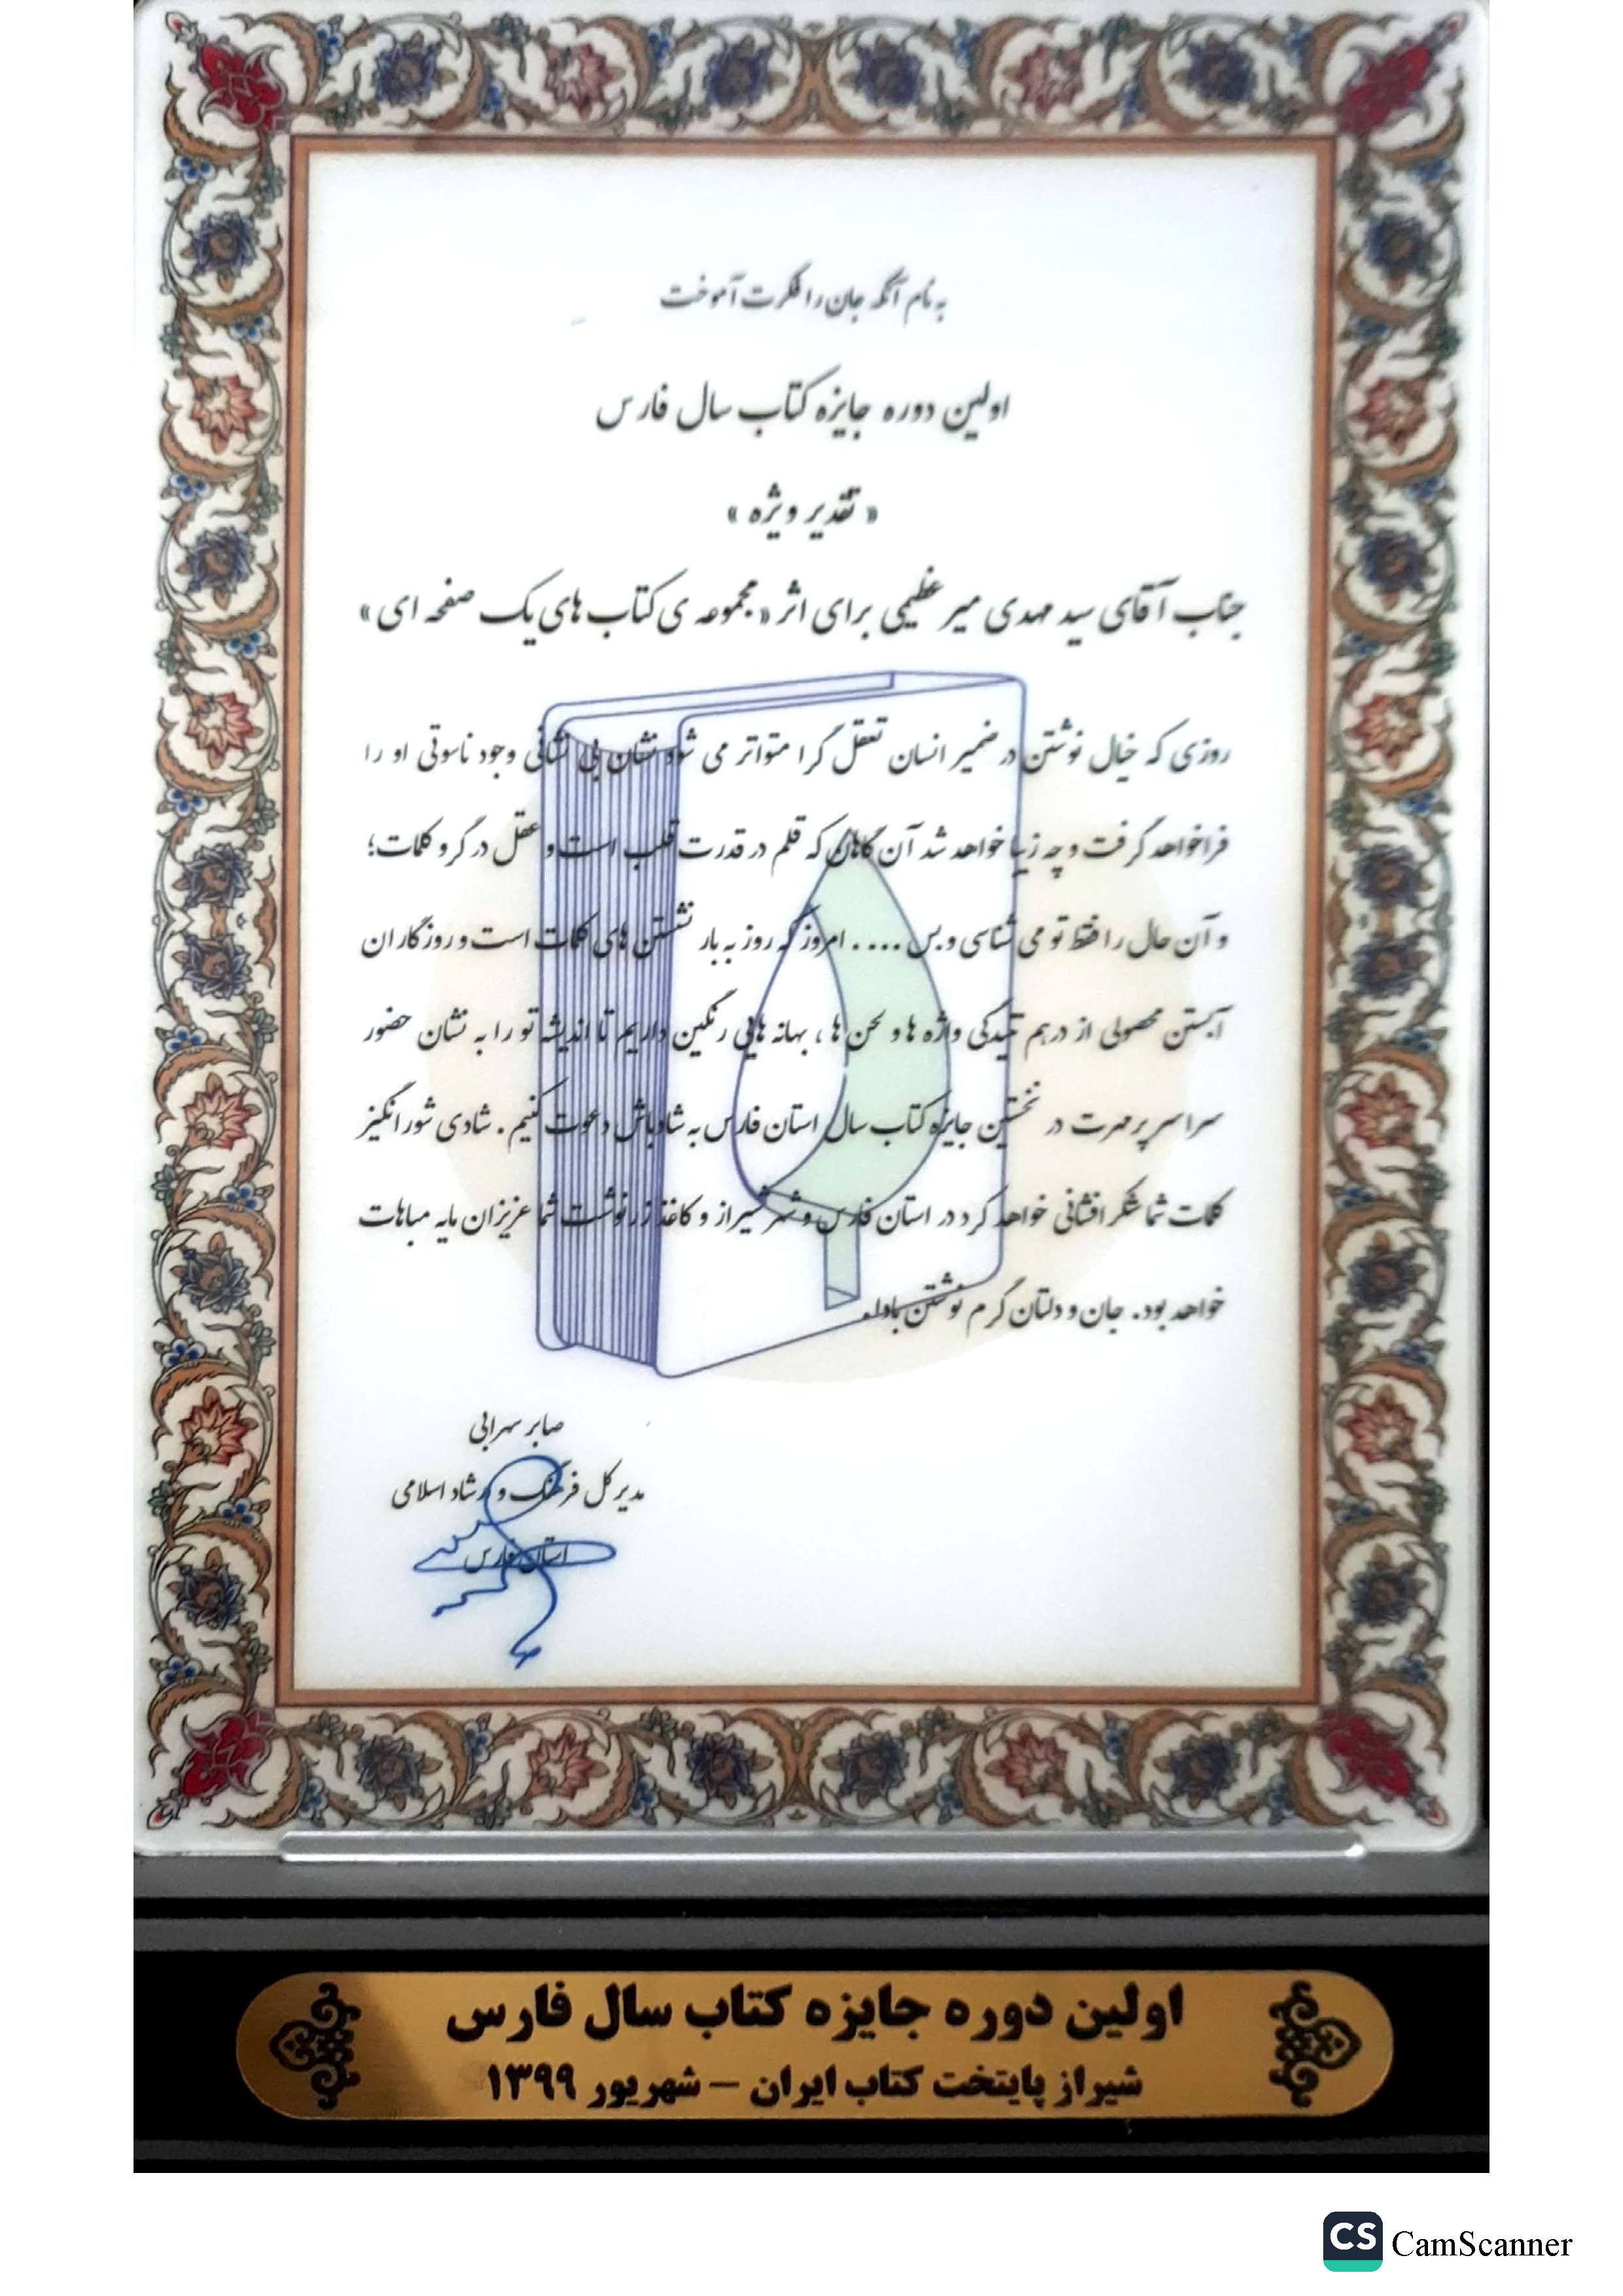 به نام آنکه جان را فکرت آموخت
اولین دوره جایزه کتاب سال فارس
« تقدیر ویژه »
جناب آقای سید مهدی میر عظیمی برای اثر «مجموعه ی کتاب های یک صفحه ای»
روزی که خیال نوشتن در ضمیر انسان تعقل گرا متواتر می شود نشان بی نشانی وجود ناسوتی او را
فراخواهد گرفت و چه زیبا خواهد شد آن گاهان که قلم در قدرت قلب است و عقل در گرو کلمات؛
و آن حال را فقط تو می شناسی و بس .... امروز که روز به بار نشستن های کلمات است و روزگاران
آبستن محصولی از درهم تنیدگی واژه ها و لحن ها ، بهانه هایی رنگین داریم تا اندیشه تو را به نشان حضور
سراسر پر مهرت در نخستین جایزه کتاب سال استان فارس به شادباش دعوت کنیم. شادی شورانگیز
کلمات شما شکر افشانی خواهد کرد در استان فارس و شهر شیراز و کاغذ زرنوشت شما عزیزان مایه مباهات
خواهد بود. جان و دلتان گرم نوشتن بادا.
صابر سهرابی
مدیر کل فرهنگ و ارشاد اسلامی
استان فارس
اولین دوره جایزه کتاب سال فارس
شیراز پایتخت کتاب ایران – شهریور ۱۳۹۹
CS CamScanner